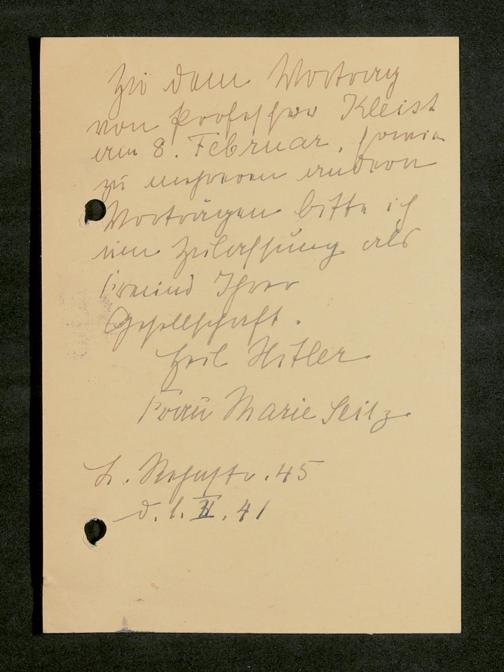 Zu dem Vortrag
von Professor Kleist
am 8. Februar, sowie
zu mehreren andern
Vorträgen bitte ich
um Zulassung als
Freund Ihrer
Gesellschaft.
Heil Hitler
Frau Marie Seitz
45
d. 1. II. 41